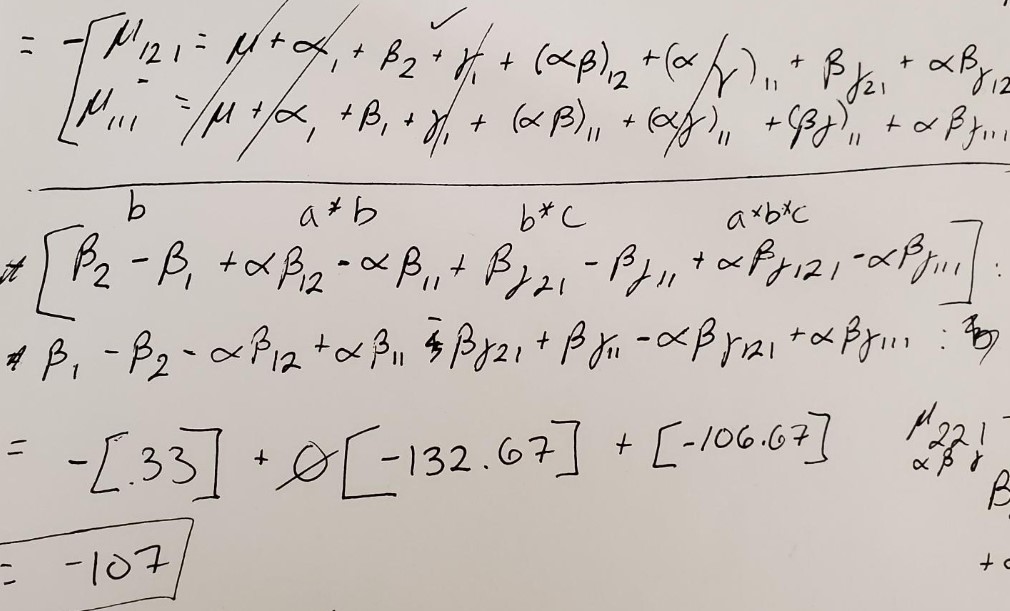 = -[ μ₁₂₁ = μ + α₁ + β₂ + γ₁ + (αβ)₁₂ + (αγ)₁₁ + βγ₂₁ + αβγ₁₂
μ₁₁₁ = μ + α₁ + β₁ + γ₁ + (αβ)₁₁ + (αγ)₁₁ + (βγ)₁₁ + αβγ₁₁₁
b a*b b*c a*b*c
[β₂ - β₁ + αβ₁₂ - αβ₁₁ + βγ₂₁ - βγ₁₁ + αβγ₁₂₁ - αβγ₁₁₁] :
β₁ - β₂ - αβ₁₂ + αβ₁₁ - βγ₂₁ + βγ₁₁ - αβγ₁₂₁ + αβγ₁₁₁ :
= -[.33] + 0[-132.67] + [-106.67]
μ₂₂₁
αβγ
β
= -107
+